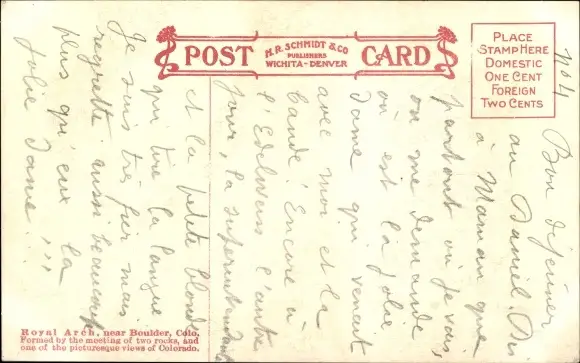 POST CARD
H. R. SCHMIDT & CO
PUBLISHERS
WICHITA - DENVER
PLACE
STAMP HERE
DOMESTIC
ONE CENT
FOREIGN
TWO CENTS
No 4
Bon déjeuner
au Daniel. Dis
à Maman que
partout où je vais,
on me demande
où est la jolie
Dame qui venait
avec moi et la
bande! Encore à
l'Edelweiss l'autre
jour, la
et la petite blonde
qui tire la langue
Je suis très fier mais
regrette aussi beaucoup
plus qu'eux la
jolie Dame!!!
Royal Arch, near Boulder, Colo.
Formed by the meeting of two rocks, and
one of the picturesque views of Colorado.